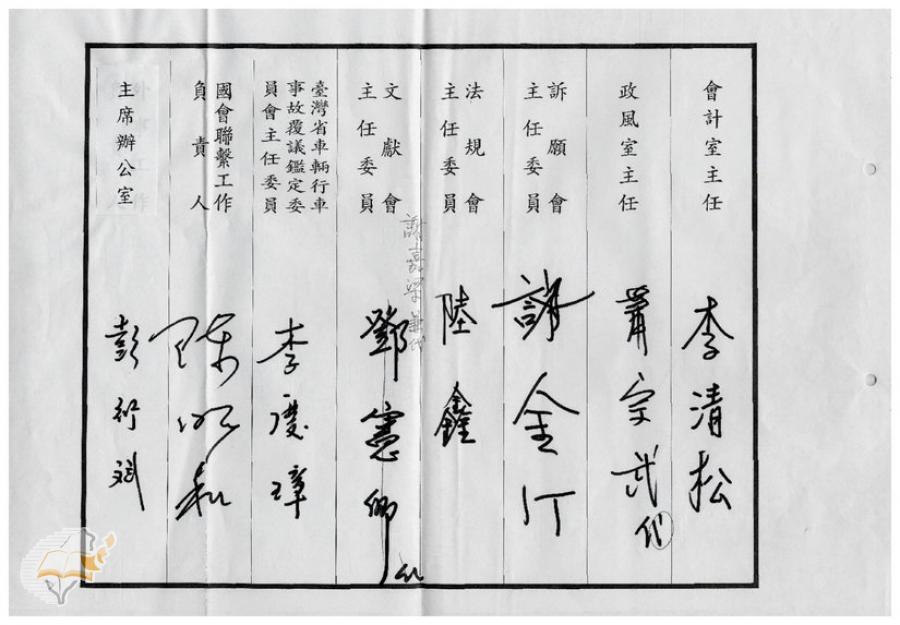 會計室主任
李清松
政風室主任
蕭宗武代
訴願會
主任委員
謝金汀
法規會
主任委員
陸鑫
文獻會
主任委員
謝嘉梁
鄧憲卿代
臺灣省車輛行車
事故覆議鑑定委
員會主任委員
李慶璋
國會聯繫工作
負責人
陳明和
主席辦公室
彭
斌